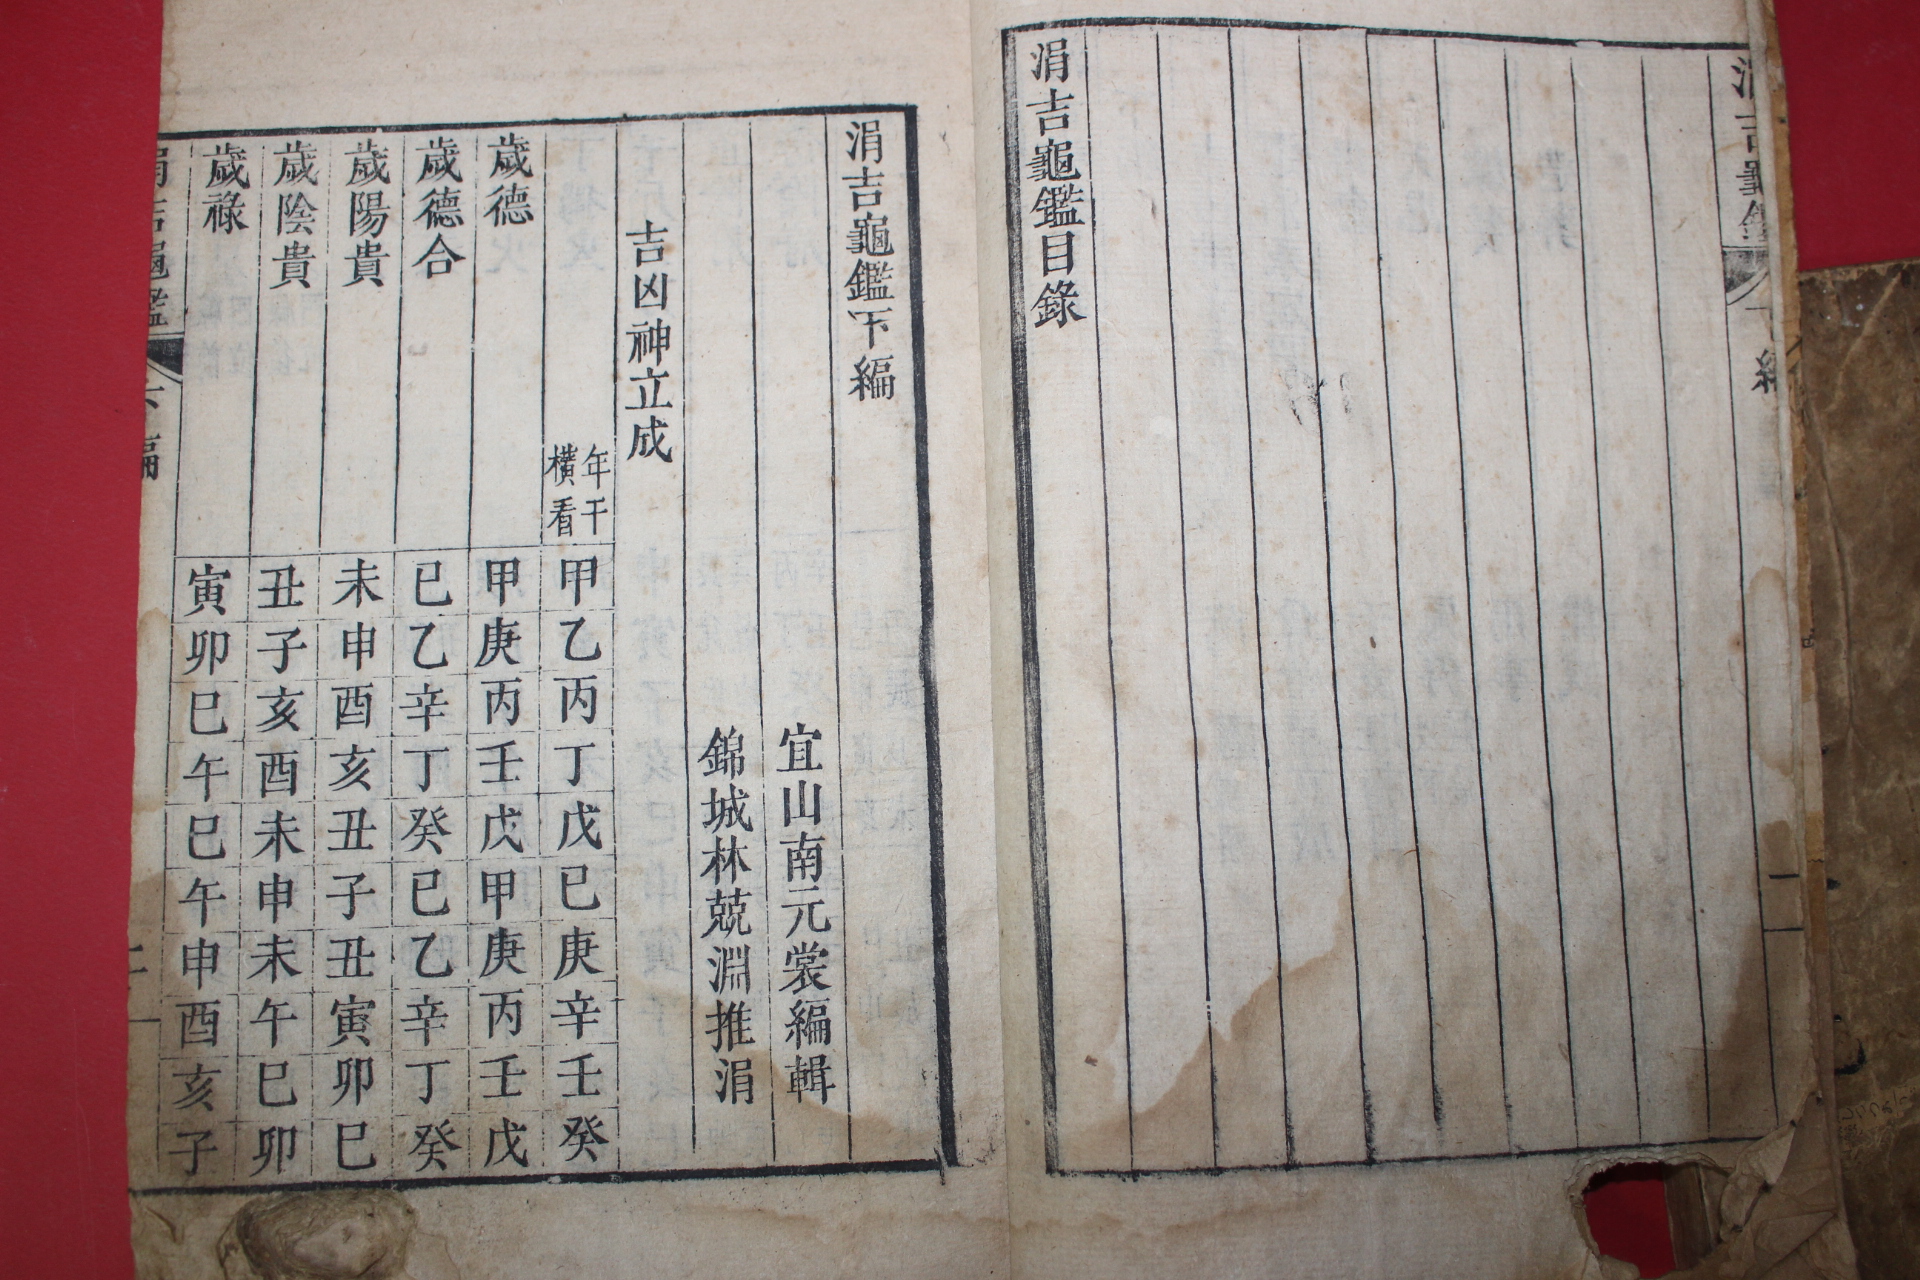 涓吉龜鑑目錄
涓吉龜鑑下編
宜山南元裳編輯
錦城林兢淵推涓
吉凶神立成
年干
橫看
甲乙丙丁戊己庚辛壬癸
歲德 甲庚丙壬戊甲庚丙壬戊
歲德合 已乙辛丁癸已乙辛丁癸
歲陽貴 未申酉亥丑子丑寅卯巳
歲陰貴 丑子亥酉未申未午巳卯
歲祿 寅卯巳午巳午申酉亥子
涓吉龜鑑 下編